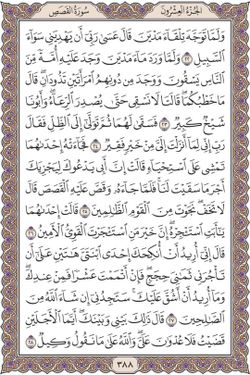 الجزء العشرون سورة القصص
ولما توجه تلقاء مدين قال عسى ربي أن يهديني سواء
السبيل ٢٢ ولما ورد ماء مدين وجد عليه أمة من
الناس يسقون ووجد من دونهم امرأتين تذودان قال
ما خطبكما قالتا لا نسقي حتى يصدر الرعاء وأبونا
شيخ كبير ٢٣ فسقى لهما ثم تولى إلى الظل فقال
رب إني لما أنزلت إلي من خير فقير ٢٤ فجاءته إحداهما
تمشي على استحياء قالت إن أبي يدعوك ليجزيك
أجر ما سقيت لنا فلما جاءه وقص عليه القصص قال
لا تخف نجوت من القوم الظالمين ٢٥ قالت إحداهما
يا أبت استأجره إن خير من استأجرت القوي الأمين ٢٦
قال إني أريد أن أنكحك إحدى ابنتي هاتين على أن
تأجرني ثماني حجج فإن أتممت عشرا فمن عندك
وما أريد أن أشق عليك ستجدني إن شاء الله من
الصالحين ٢٧ قال ذلك بيني وبينك أيما الأجلين
قضيت فلا عدوان علي والله على ما نقول وكيل ٢٨
٣٨٨